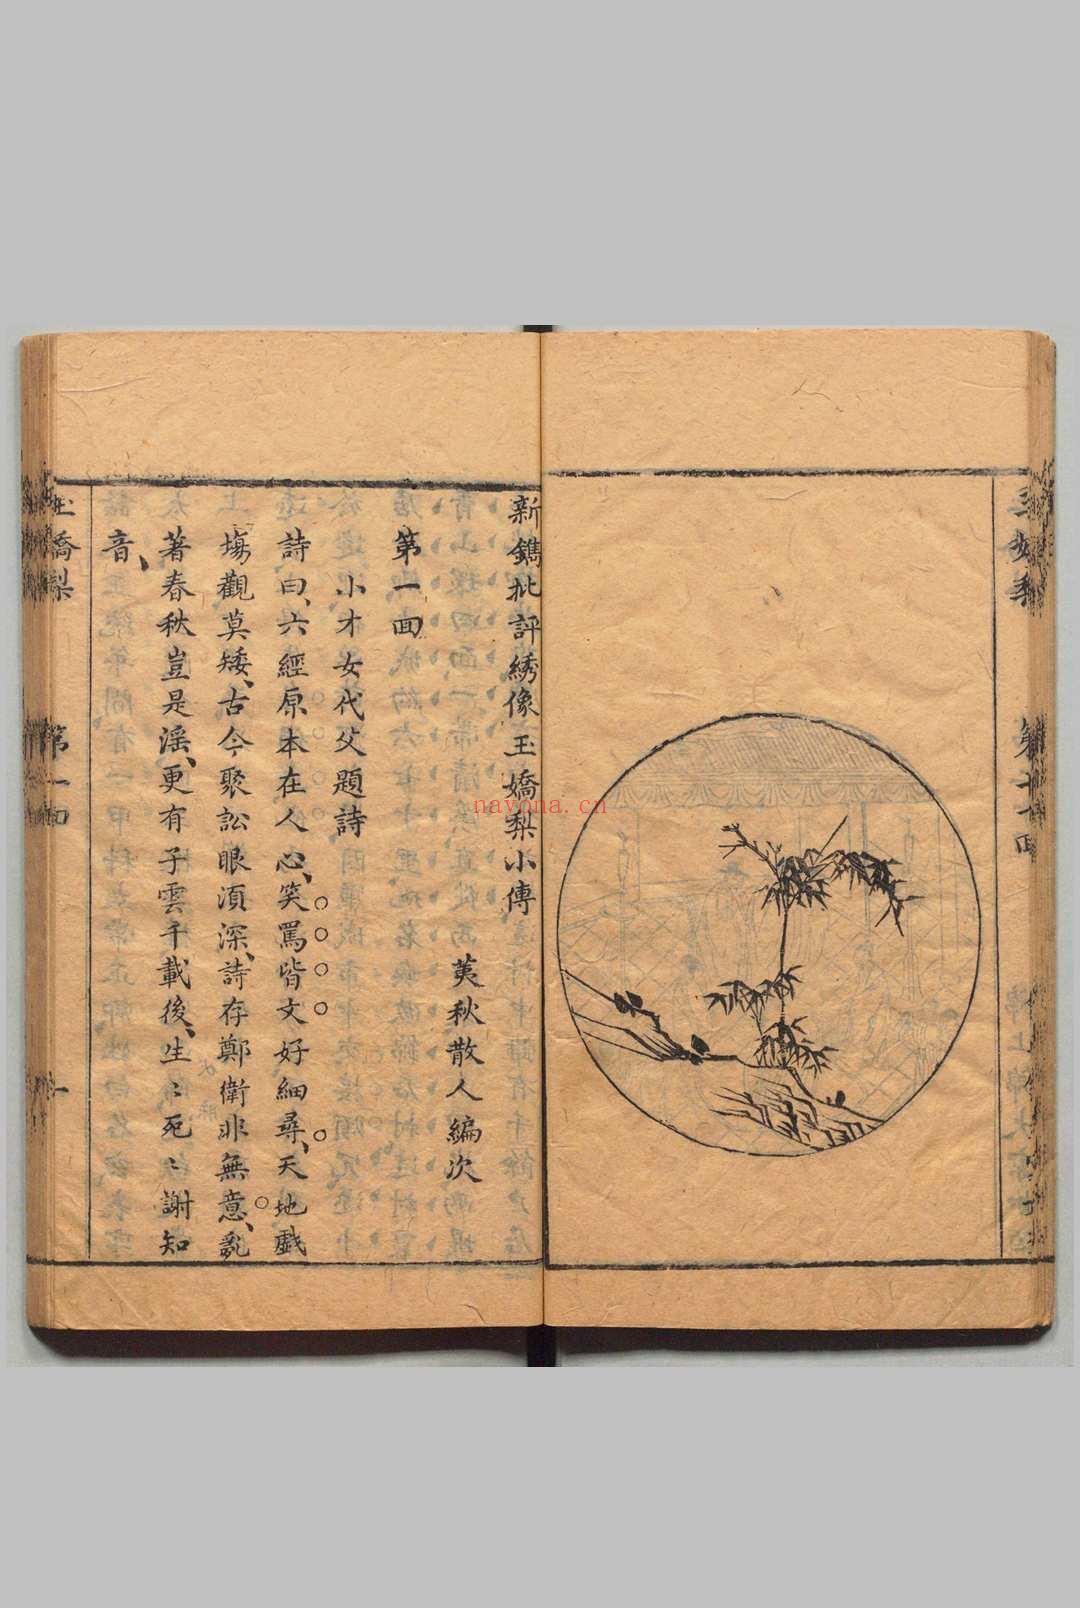 新鐫批評綉像玉嬌梨小傳
荑秋散人編次
第一回
小才女代父題詩
詩曰、六經原本在人心、笑罵皆文好細尋、天地戲
塲觀莫矮、古今聚訟眼湏深、詩存鄭衛非無意、亂
著春秋豈是滛、更有子雲千載後、生〻死〻謝知
音、
玉嬌梨
第一回
一
nayona.cn